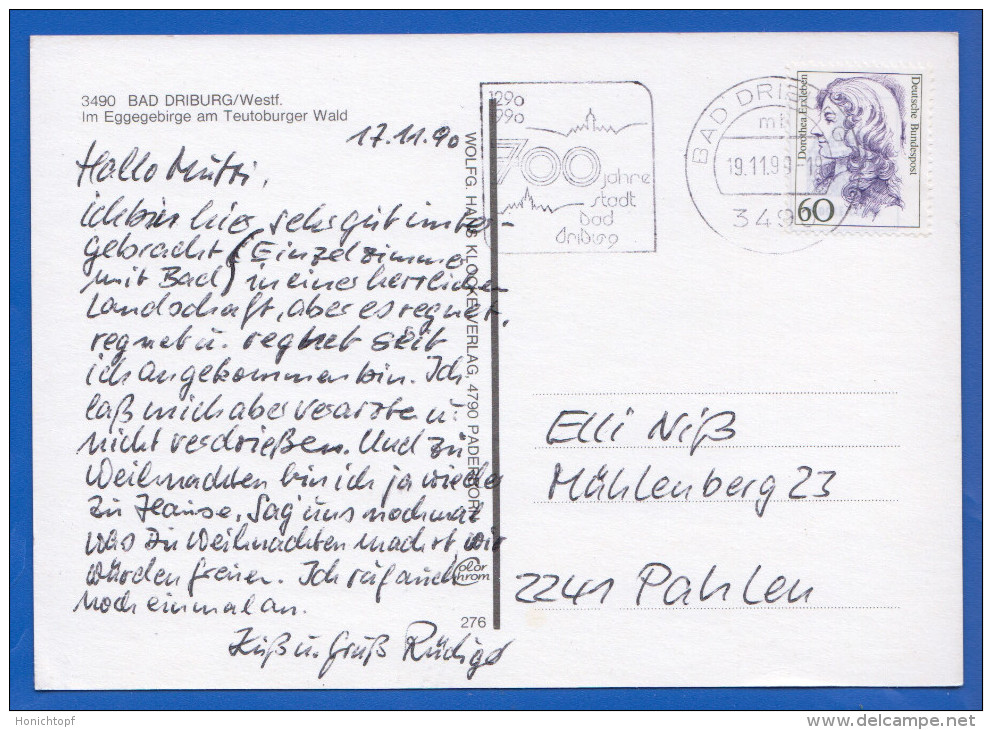 3490 BAD DRIBURG/Westf.
Im Eggegebirge am Teutoburger Wald
17.11.90
Hallo Mutti,
ich bin hier sehr gut unter-
gebracht (Einzelzimmer
mit Bad) in einer herrlichen
Landschaft, aber es regnet,
regnet u. regnet seit
ich angekommen bin. Ich
laß mich aber verarzte u.
nicht verdrießen. Und zu
Weihnachten bin ich ja wieder
zu Hause. Sag' uns nochmal
was Du Weihnachten machst, wir
würden freuen. Ich ruf auch
noch einmal an.
Kuß u. Gruß Rüdiger
WOLFG. HANS KLOCKE VERLAG, 4790 PADERBORN
Color
chrom
276
1290
1990
700
jahre
stadt
bad
driburg
BAD DRIBURG
19.11.90
3490
Dorothea Erxleben
Deutsche Bundespost
60
Elli Niß
Mühlenberg 23
2241 Pahlen
Honichtopf
www.delcampe.net